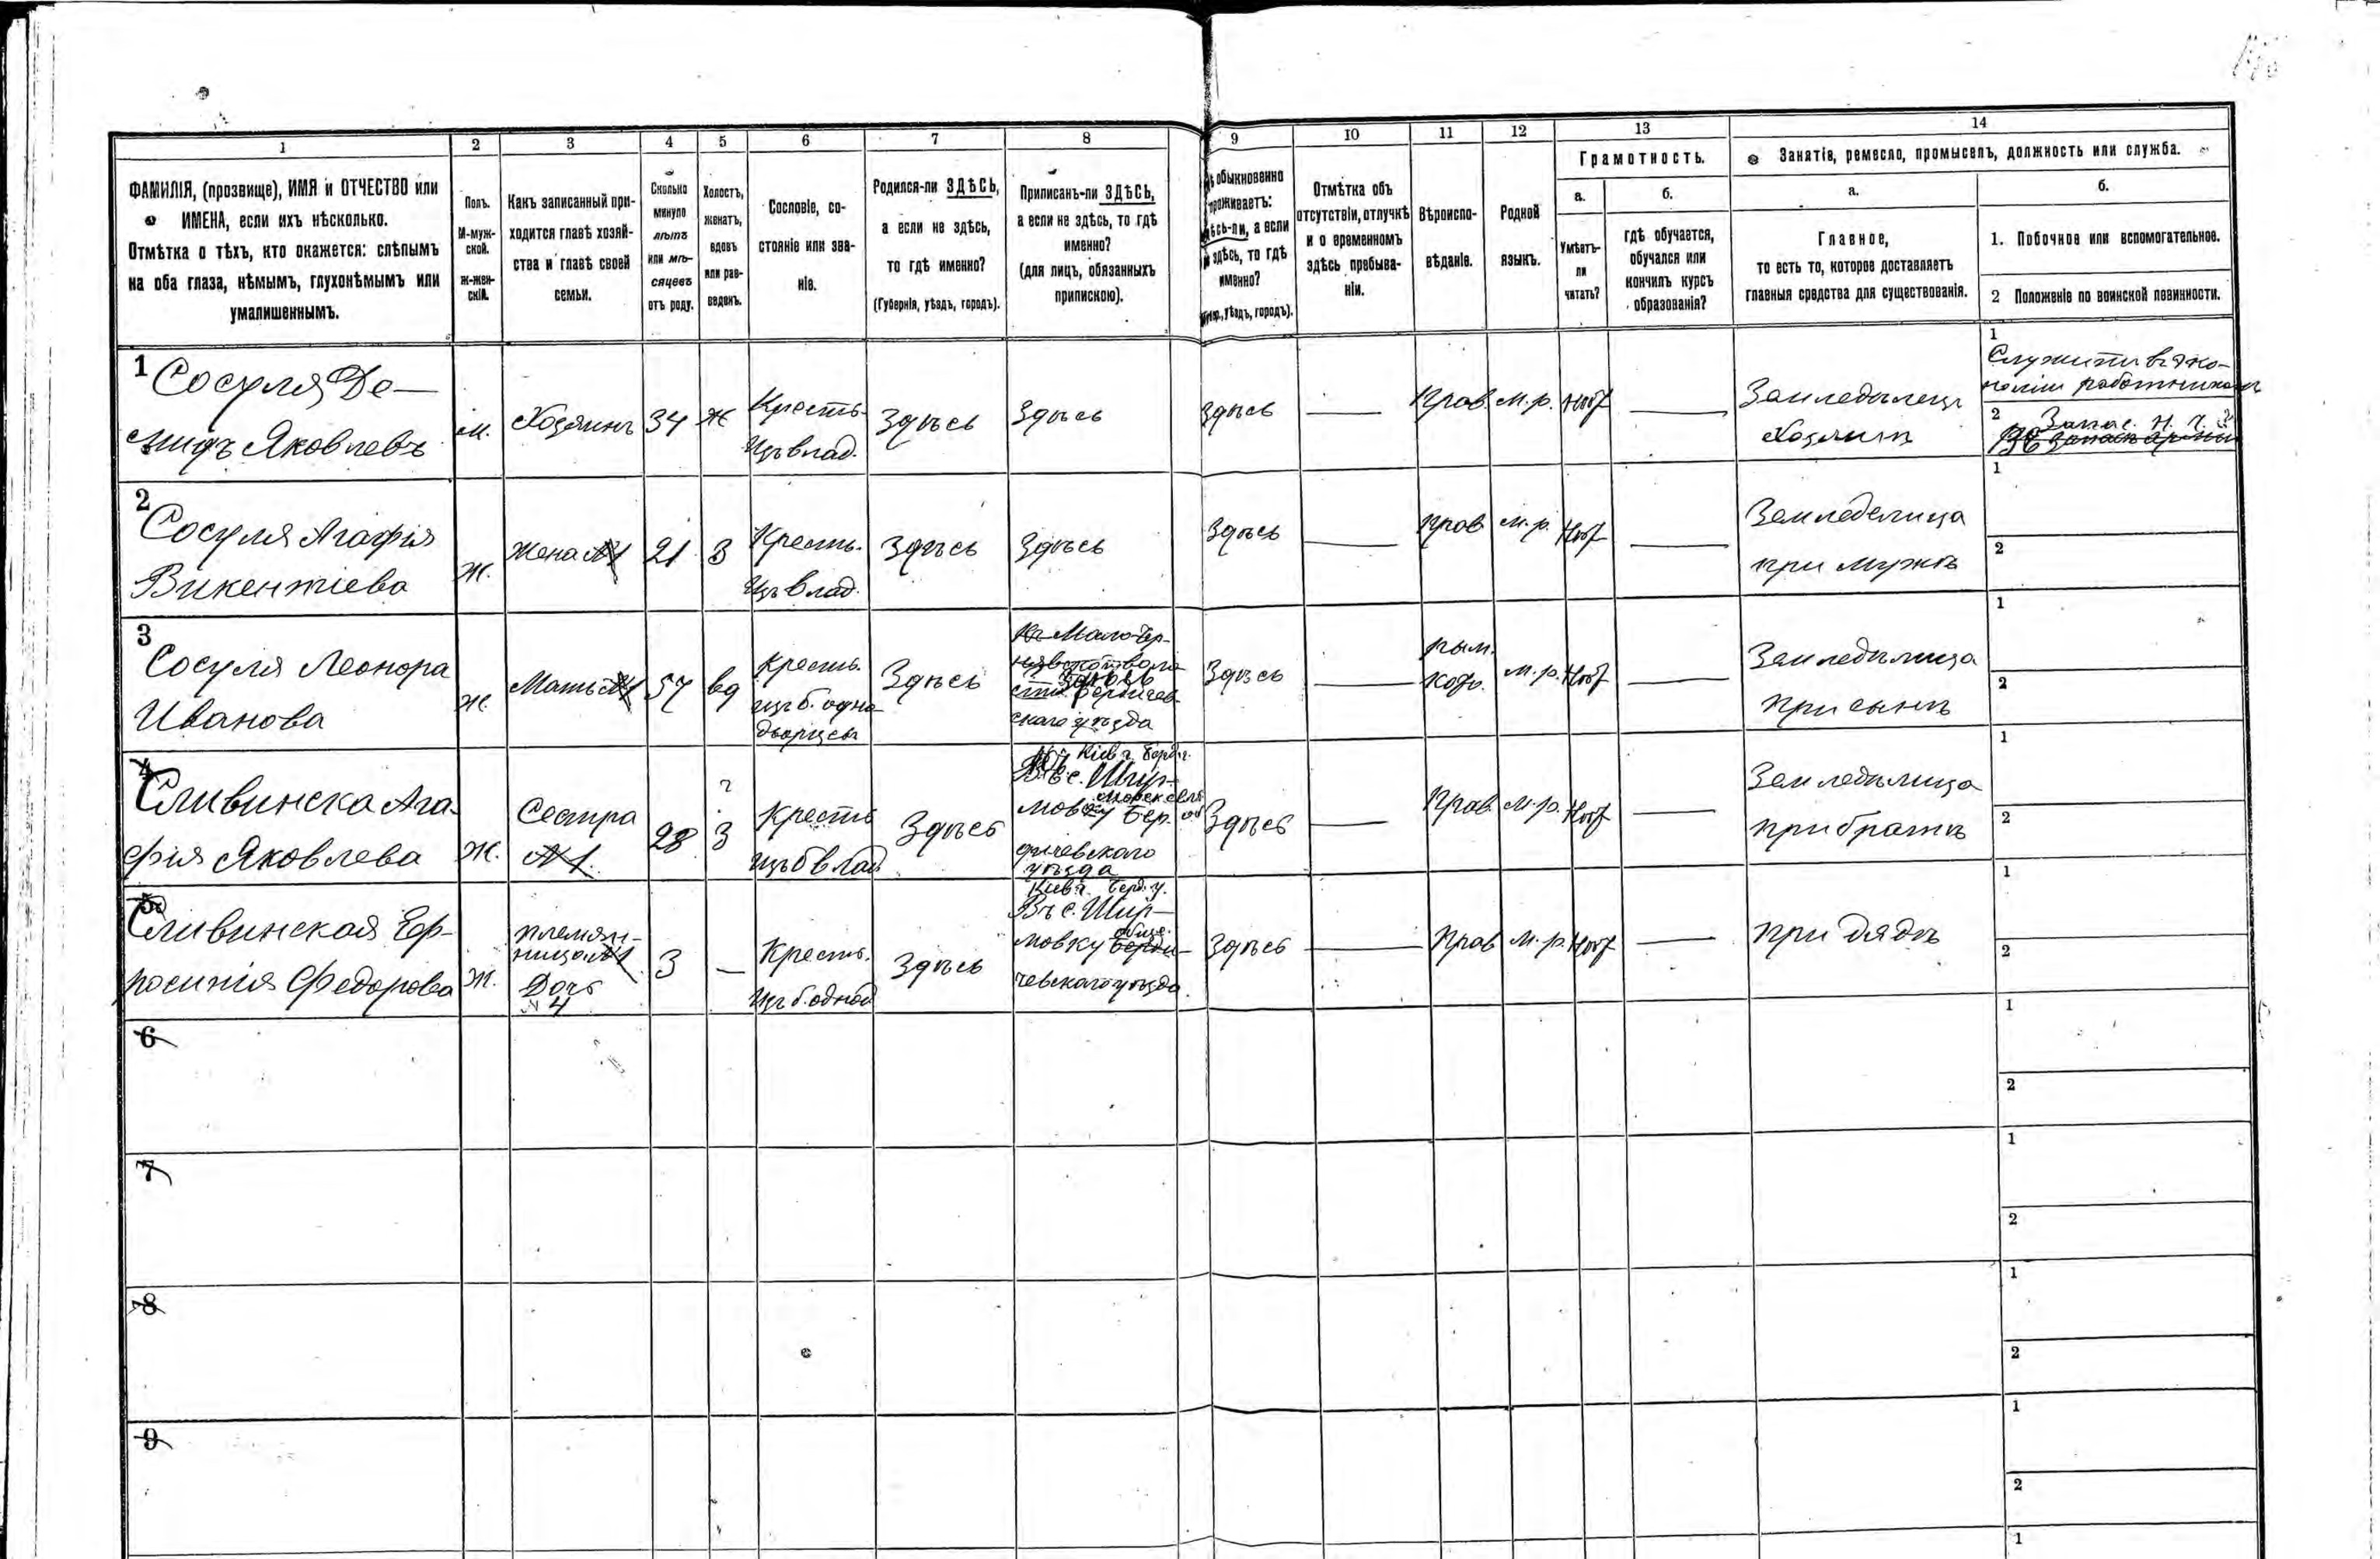 1 2 3 4 5 6 7 8 9 10 11 12 13 14
ФАМИЛІЯ, (прозвище), ИМЯ и ОТЧЕСТВО или
ИМЕНА, если ихъ нѣсколько.
Отмѣтка о тѣхъ, кто окажется: слѣпымъ
на оба глаза, нѣмымъ, глухонѣмымъ или
умалишеннымъ.
Полъ.
М-муж-
ской.
Ж-жен-
скій.
Какъ записанный при-
ходится главѣ хозяй-
ства и главѣ своей
семьи.
Сколько
минуло
лѣтъ
или мѣ-
сяцевъ
отъ роду.
Холостъ,
женатъ,
вдовъ
или раз-
веденъ.
Сословіе, со-
стояніе или зва-
ніе.
Родился-ли ЗДѢСЬ,
а если не здѣсь,
то гдѣ именно?
(Губернія, уѣздъ, городъ).
Приписанъ-ли ЗДѢСЬ,
а если не здѣсь, то гдѣ
именно?
(для лицъ, обязанныхъ
припискою).
обыкновенно
проживаетъ:
здѣсь-ли, а если
не здѣсь, то гдѣ
именно?
уѣздъ, городъ).
Отмѣтка объ
отсутствіи, отлучкѣ
и о временномъ
здѣсь пребыва-
ніи.
Вѣроиспо-
вѣданіе.
Родной
языкъ.
Грамотность.
а.
Умѣетъ-
ли
читать?
б.
гдѣ обучается,
обучался или
кончилъ курсъ
образованія?
Занятія, ремесло, промыселъ, должность или служба.
а.
Главное,
то есть то, которое доставляетъ
главныя средства для существованія.
б.
1. Побочное или вспомогательное.
2 Положеніе по воинской повинности.
1 Сосуля Де-
мидъ Яковлевъ
м.
Хозяинъ
34
ж
Кресть-
изъ влад.
Здѣсь
Здѣсь
Здѣсь
—
Прав.
м.р.
Нѣт
—
Земледѣлецъ
Хозяинъ
1
Служитъ въ эко-
номіи работникомъ
2
Запас.
2
Сосуля Агафія
Викентіева
ж.
Жена №1
21
З
Кресть.
изъ влад.
Здѣсь
Здѣсь
Здѣсь
—
Прав
м.р.
Нѣт
—
Земледелица
при мужѣ
1
2
3
Сосуля Леонора
Иванова
ж.
Мать №1
57
вд
Кресть.
изъ б. одно
дворцевъ
Здѣсь
Здѣсь
скаго уѣзда
Здѣсь
—
Рым.
Кат.
м.р.
Нѣт
—
Земледѣлица
При сынѣ
1
2
4
Сливинска Ага-
фія Яковлева
ж.
Сестра
№1.
28
?
З
Кресть
изъ б влад
Здѣсь
Кіев г. Берд.
Въ с. Шир-
мовку Бер-
дичевского
уѣзда
Здѣсь
—
Прав.
м.р.
Нѣт
—
Земледѣлица
при братѣ
1
2
5
Сливинская Еф-
росинія Федорова
ж.
племян-
ница №1
Дочь
№ 4
3
—
Кресть.
изъ б. однод
Здѣсь
Кіев г. Берд. у.
Въ с. Шир-
мовку Берди-
чевского уѣзда
Здѣсь
—
Прав
м.р.
Нѣт
—
при дядѣ
1
2
6
1
2
7
1
2
8
1
2
9
1
2
1